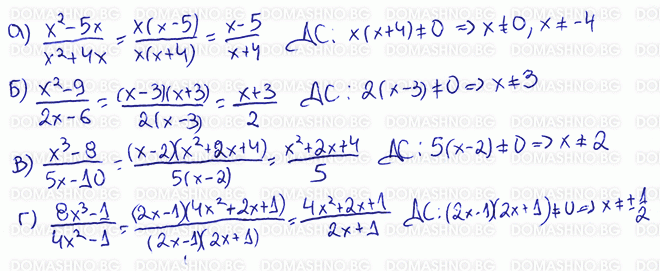 а) (x²-5x)/(x²+4x) = (x(x-5))/(x(x+4)) = (x-5)/(x+4) ДС: x(x+4)≠0 => x≠0, x≠-4
Б) (x²-9)/(2x-6) = ((x-3)(x+3))/(2(x-3)) = (x+3)/2 ДС: 2(x-3)≠0 => x≠3
В) (x³-8)/(5x-10) = ((x-2)(x²+2x+4))/(5(x-2)) = (x²+2x+4)/5 ДС: 5(x-2)≠0 => x≠2
Г) (8x³-1)/(4x²-1) = ((2x-1)(4x²+2x+1))/((2x-1)(2x+1)) = (4x²+2x+1)/(2x+1) ДС: (2x-1)(2x+1)≠0 => x≠±1/2